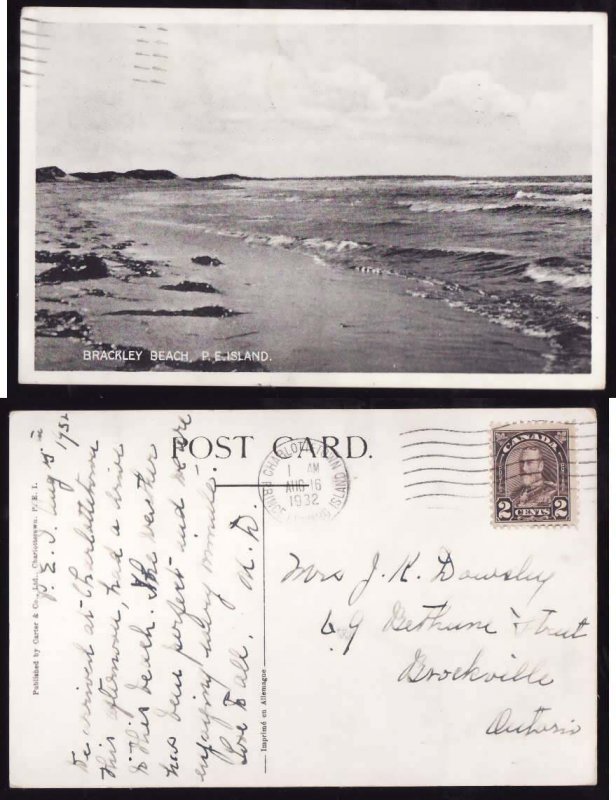 BRACKLEY BEACH, P. E. ISLAND.
POST CARD.
CHARLOTTETOWN
1 AM
AUG 16
1932
PRINCE EDWARD ISLAND
CANADA
2 2
CENTS
Published by Carter & Co., Ltd., Charlottetown, P. E. I.
P. E. I. Aug 15 1932
We arrived at Charlottetown
this afternoon, had a drive
to this beach. The weather
has been perfect and we are
enjoying every minute.
Love to all, M. D.
Imprimé en Allemagne
Mrs J. K. Dowsley
69 Bethune Street
Brockville
Ontario